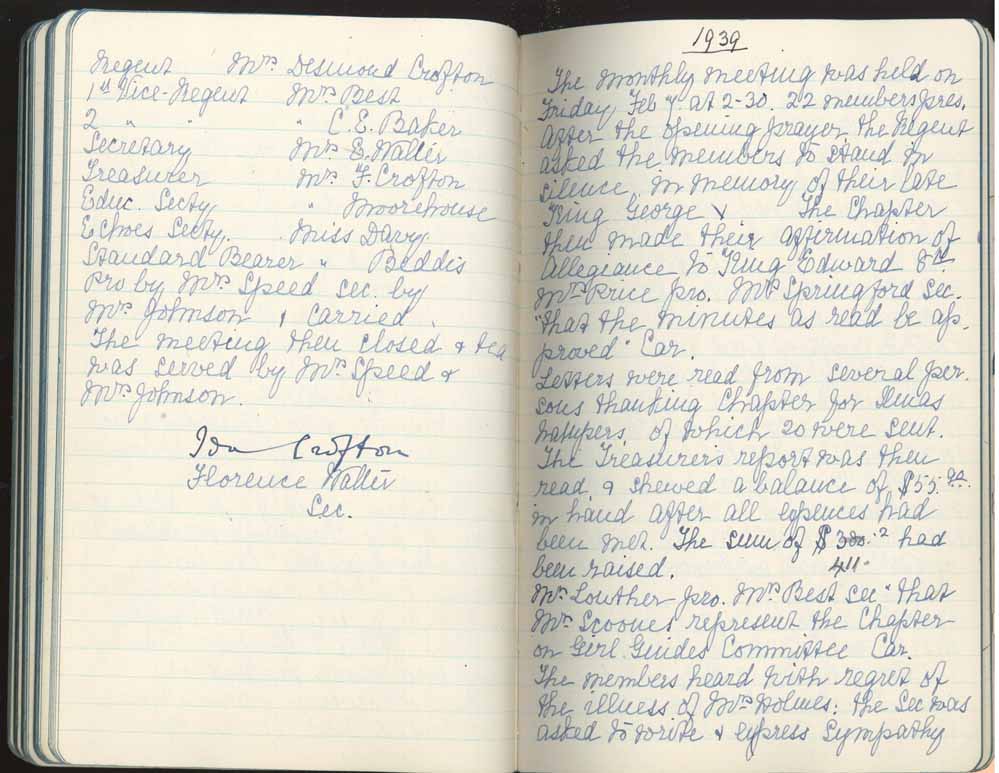 Regent Mrs Desmond Crofton
1st Vice-Regent Mrs Best
2 " " " C. E. Baker
Secretary Mrs E. Walter
Treasurer Mrs F. Crofton
Educ. Secty " Moorehouse
Echoes Secty. Miss Davy
Standard Bearer " Beddis
Pro by Mrs Speed sec. by
Mrs Johnson, carried.
The meeting then closed & tea
was served by Mrs Speed &
Mrs Johnson.
Crofton
Florence Walter
Sec.
1939
The monthly meeting was held on
Friday Feb 7 at 2-30. 22 members pres.
After the opening prayer the Regent
asked the members to stand in
silence, in memory of their late
King George V The Chapter
then made their affirmation of
Allegiance to King Edward 8th.
Mrs Price pro. Mrs Springford Sec.
"that the minutes as read be ap-
proved" Car.
Letters were read from several per-
sons thanking Chapter for Xmas
hampers, of which 20 were sent.
The Treasurer's report was then
read & shewed a balance of $55.
in hand after all expences had
been met. The sum of $ had
been raised. 411
Mrs Louther pro. Mrs Best sec "that
Mrs Scoones represent the Chapter
on Girl Guides Committee Car.
The members heard with regret of
the illness of Mrs Holmes: the Sec was
asked to write & express sympathy